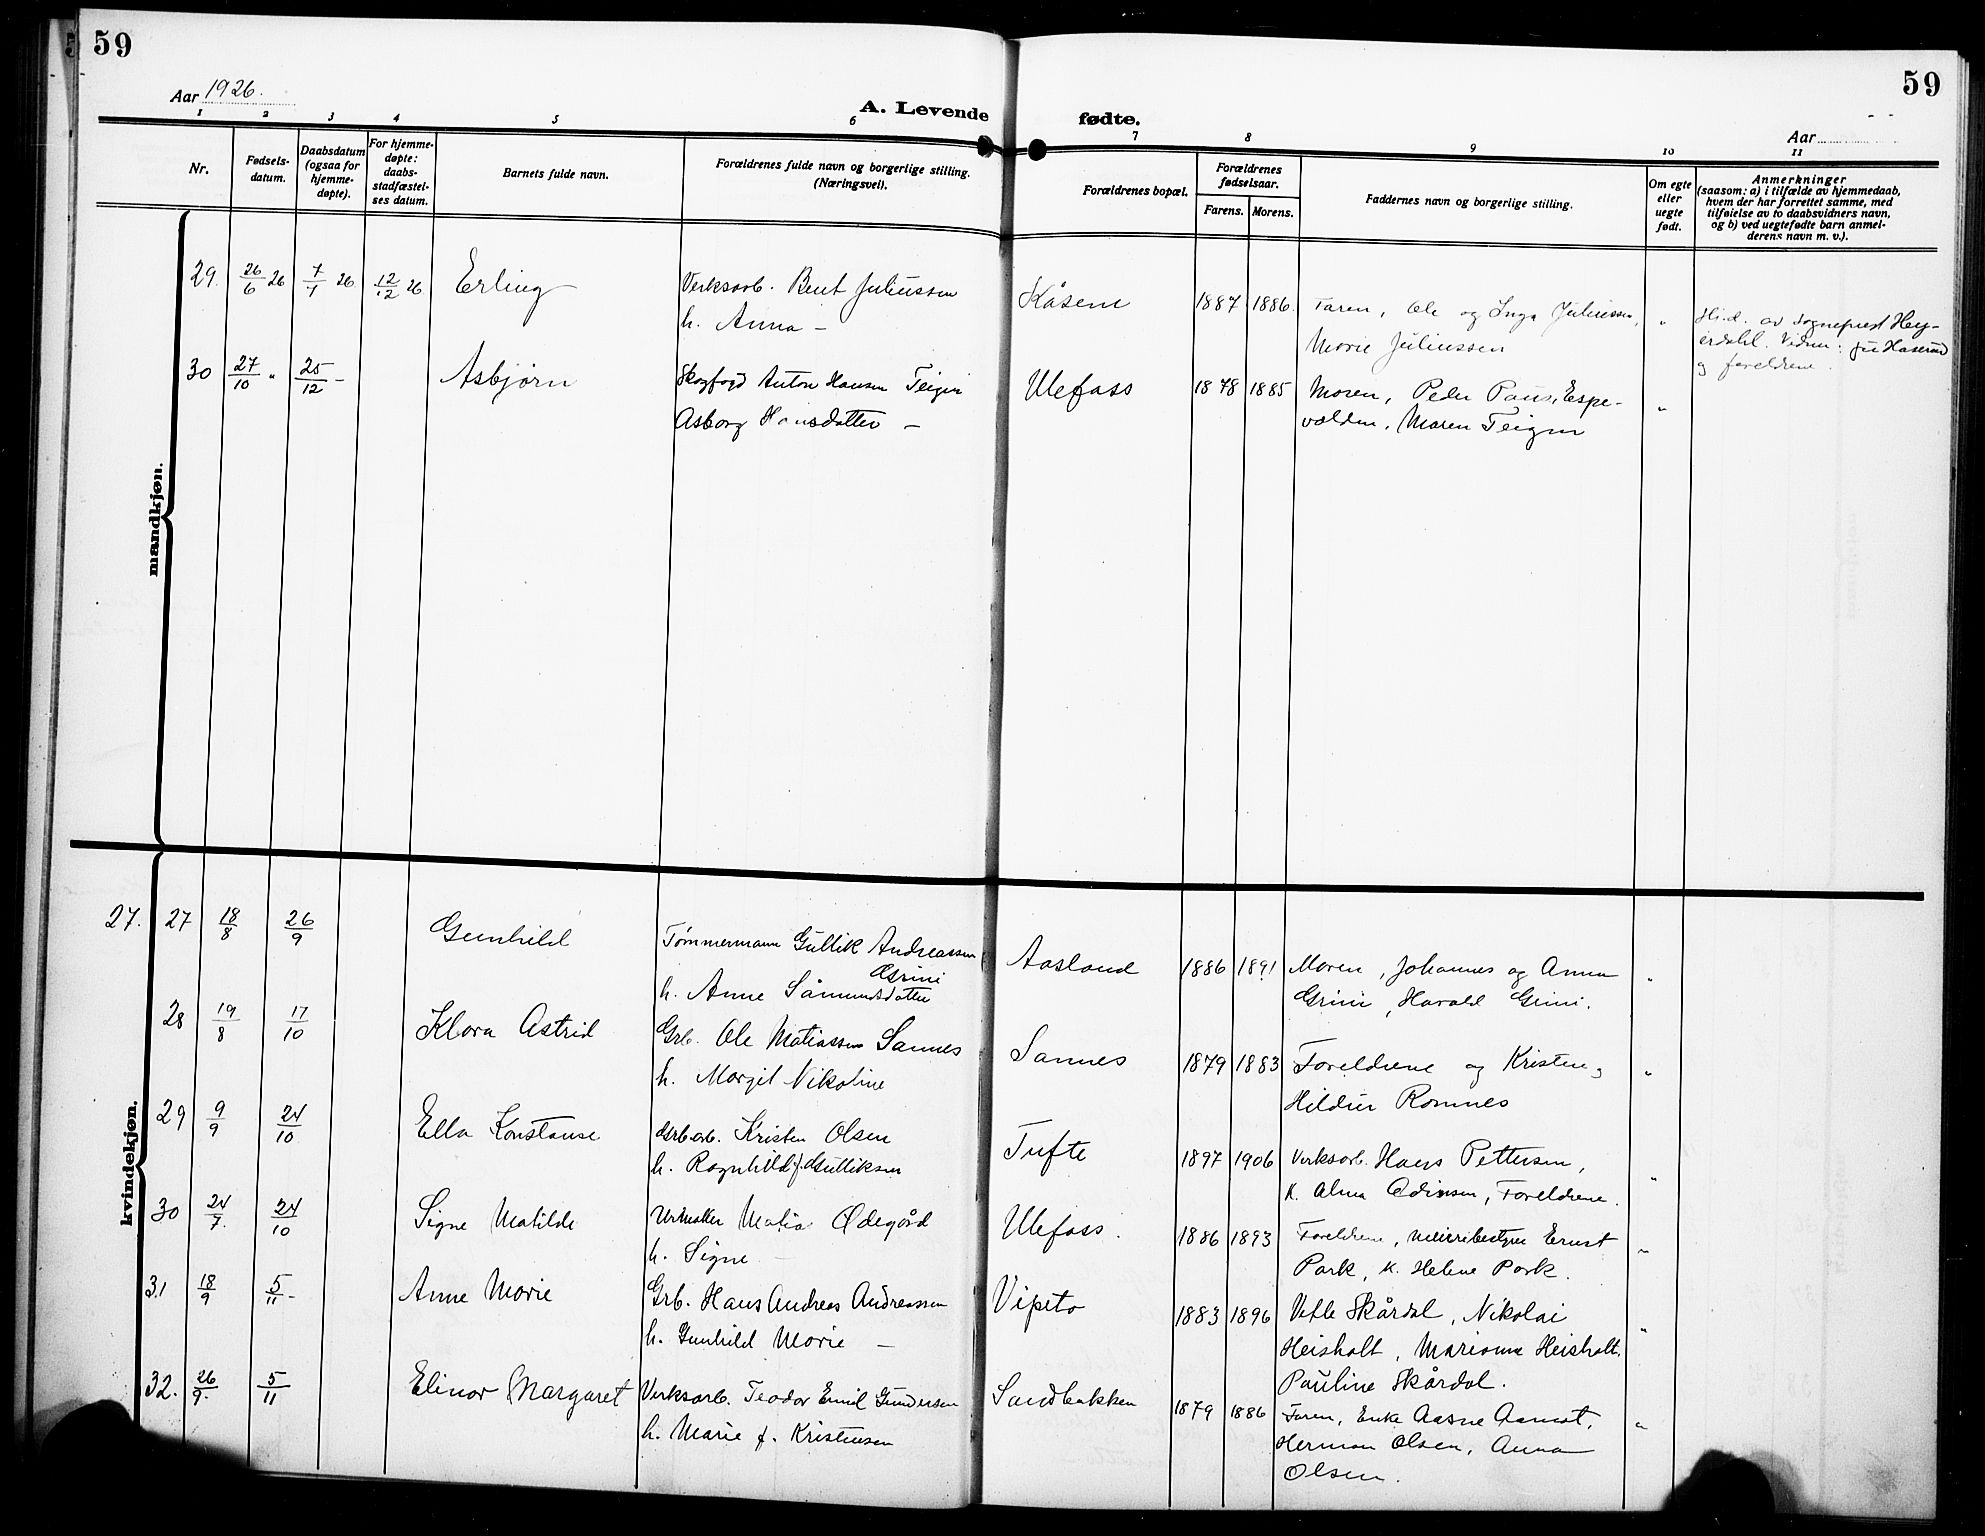 59
59
Aar 1926.
A. Levende fødte.
Aar
1 2 3 4 5 6 7 8 9 10 11
Nr.
Fødsels-
datum.
Daabsdatum
(ogsaa for
hjemme-
døpte).
For hjemme-
døpte:
daabs-
stadfæstel-
ses datum.
Barnets fulde navn.
Forældrenes fulde navn og borgerlige stilling.
(Næringsvei).
Forældrenes bopæl.
Forældrenes
fødselsaar.
Farens. Morens.
Faddernes navn og borgerlige stilling.
Om egte
eller
uegte
født.
Anmerkninger
(saasom: a) i tilfælde av hjemmedaab,
hvem der har forrettet samme, med
tilføielse av to daabsvidners navn,
og b) ved uegtefødte barn anmel-
derens navn m. v.).
mandkjøn.
29. 26/6 26 7/7 26 12/12 26 Erling
Verksarb. Bent Juliussen
h. Anna –
Kåsene 1887 1886.
Faren, Ole og Inga Juliussen,
Marie Juliussen
"
Hj.d. av sogneprest Hey-
erdahl. Vidner: Haserud
og foreldrene.
30 27/10 " 25/12 – Asbjørn
Skogfogd Anton Hansen Teigen
Asborg Hansdatter –
Ulefoss 1878 1885
Moren, Peder Paus, Espe-
volden, Maren Teigen
"
kvindekjøn.
27. 27 18/8 26/9 Gunhild
Tømmermann Gullik Andreassen
Grini
h. Anne Såmundsdatter
Aasland 1886 1891
Moren, Johannes og Anna
Grini, Harald Grini.
"
28 19/8 17/10 Klara Astrid
Grb. Ole Matiassen Sannes
h. Margit Nikoline
Sannes 1879 1883
Foreldrene og Kristen og
Hildur Romnes
"
29 9/9 24/10 Ella Konstanse
Grb.arb. Kristen Olsen
h. Ragnhild f. Gulliksen
Tufte 1897 1906
Verksarb. Hans Pettersen,
K. Alma Edinsen, Foreldrene.
"
30 24/7. 24/10 Signe Matilde
Urmaker Matias Ødegård
h. Signe –
Ulefoss. 1886 1893
Foreldrene, Meieribestyrer Ernst
Park, K. Helene Park.
"
31 18/9 5/11 – Anne Marie
Grb. Hans Andreas Andreassen
h. Gunhild Marie –
Vipeto 1883 1896
Vetle Skårdal, Nikolai
Heisholt, Marianne Heisholt.
Pauline Skårdal.
"
32. 26/9. 5/11 Elinor Margaret
Verksarb. Teodor Emil Gundersen
h. Marie f. Kristensen
Sandbakken 1879 1886
Faren, Enke Aasne Aamot,
Herman Olsen, Anna
Olsen.
"